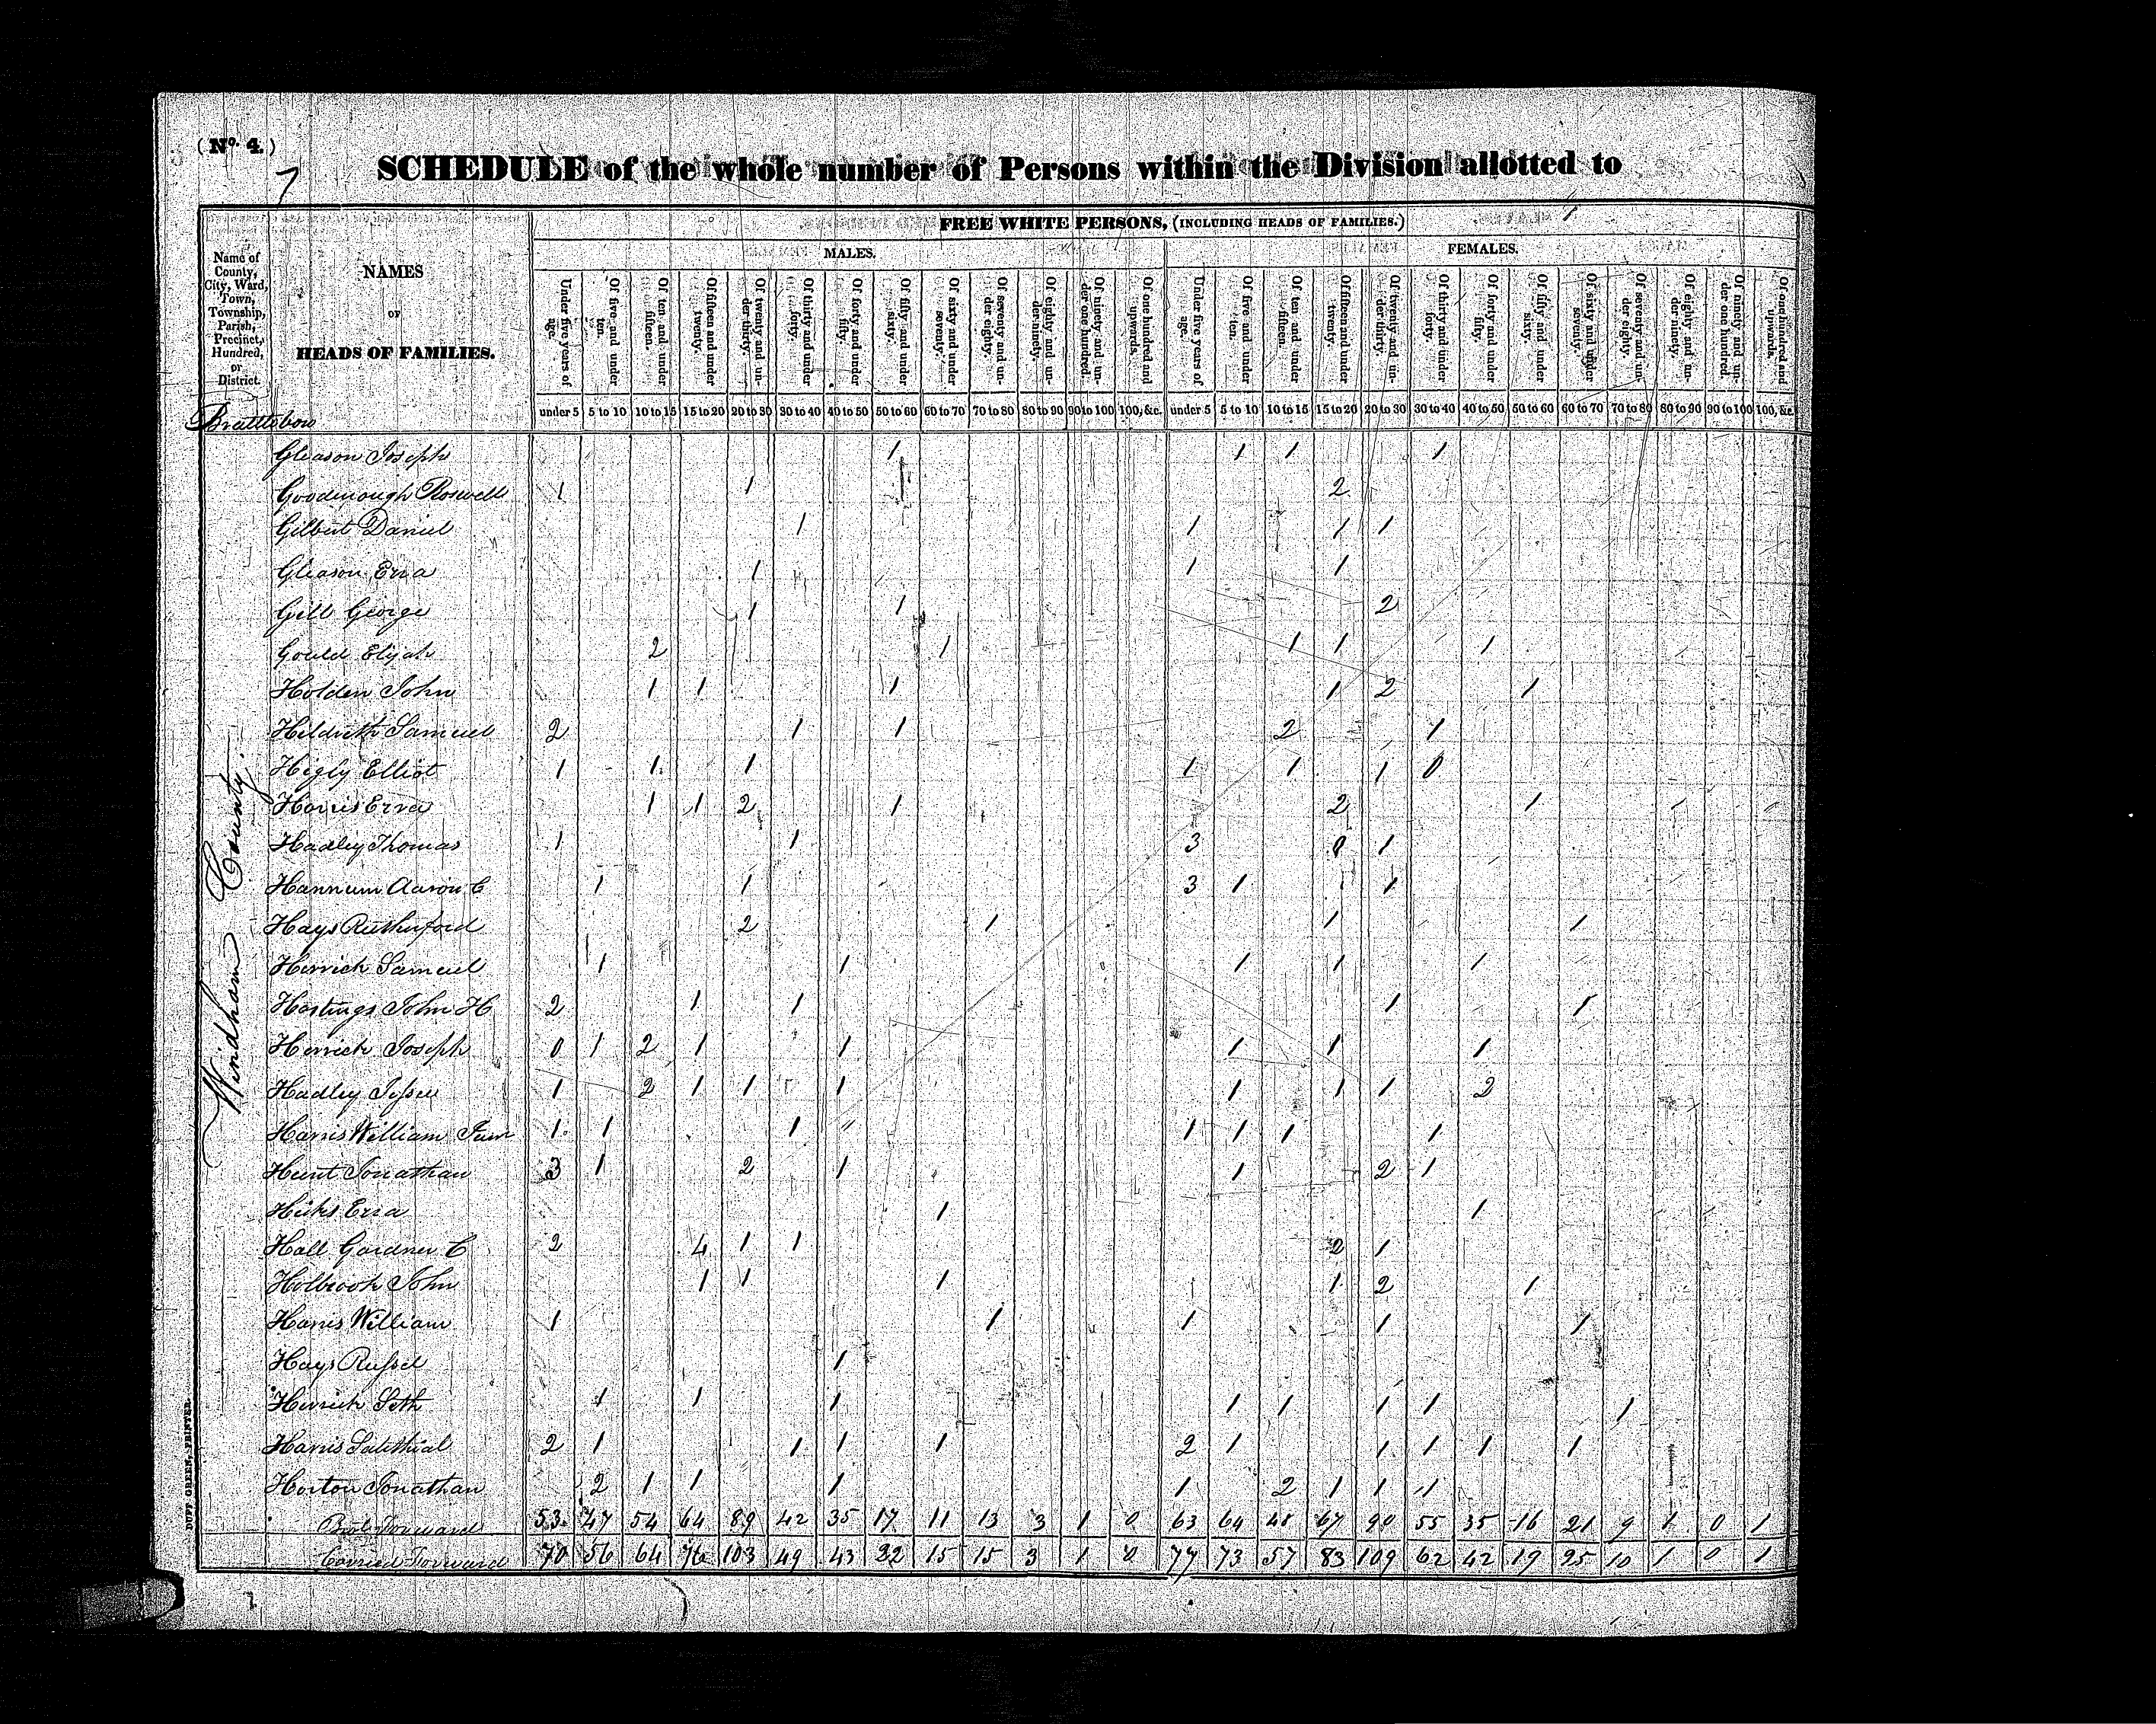 (No. 4.)
7
SCHEDULE of the whole number of Persons within the Division allotted to
FREE WHITE PERSONS, (INCLUDING HEADS OF FAMILIES.)
MALES. FEMALES.
Name of County, City, Ward, Town, Township, Parish, Precinct, Hundred, or District.
NAMES
OF
HEADS OF FAMILIES.
Under five years of age. Of five and under ten. Of ten and under fifteen. Of fifteen and under twenty. Of twenty and under thirty. Of thirty and under forty. Of forty and under fifty. Of fifty and under sixty. Of sixty and under seventy. Of seventy and under eighty. Of eighty and under ninety. Of ninety and under one hundred. Of one hundred and upwards. Under five years of age. Of five and under ten. Of ten and under fifteen. Of fifteen and under twenty. Of twenty and under thirty. Of thirty and under forty. Of forty and under fifty. Of fifty and under sixty. Of sixty and under seventy. Of seventy and under eighty. Of eighty and under ninety. Of ninety and under one hundred. Of one hundred and upwards.
under 5 5 to 10 10 to 15 15 to 20 20 to 30 30 to 40 40 to 50 50 to 60 60 to 70 70 to 80 80 to 90 90 to 100 100, &c. under 5 5 to 10 10 to 15 15 to 20 20 to 30 30 to 40 40 to 50 50 to 60 60 to 70 70 to 80 80 to 90 90 to 100 100, &c.
Brattleboro
Windham County.
Gleason Joseph 1 1 1 1
Goodenough Roswell 1 1 2
Gilbert Daniel 1 1 1 1
Gleason Ezra 1 1 1
Gill George 1 1 2
Gould Elijah 2 1 1 1 1
Holden John 1 1 1 1 2 1
Hildreth Samuel 2 1 1 2 1
Higly Elliot 1 1 1 1 1 1 0
Harris Ezra 1 1 2 1 2 1
Hadley Thomas 1 1 3 0 1
Hannum Aaron C 1 1 3 1 1
Hays Rutherford 2 1 1 1
Herrick Samuel 1 1 1 1 1
Hastings John H 2 1 1 1 1
Herrick Joseph 0 1 2 1 1 1 1 1
Hadley Jesse 1 2 1 1 1 1 1 1 2
Harris William Jun 1 1 1 1 1 1 1
Hunt Jonathan 3 1 2 1 1 2 1
Hicks Ezra 1 1
Hall Gardner C 2 4 1 1 2 1
Holbrook John 1 1 1 1 2 1
Harris William 1 1 1 1 1
Hays Russel 1
Herrick Seth 1 1 1 1 1 1 1 1
Harris Salathial 2 1 1 1 1 2 1 1 1 1 1
Horton Jonathan 2 1 1 1 1 2 1 1 1
Brot Forward 53 47 54 64 89 42 35 17 11 13 3 1 0 63 64 48 67 90 55 35 16 21 9 1 0 1
Carried Forward 70 56 64 76 103 49 43 22 15 15 3 1 0 77 73 57 83 109 62 42 19 25 10 1 0 1
DUFF GREEN, PRINTER.